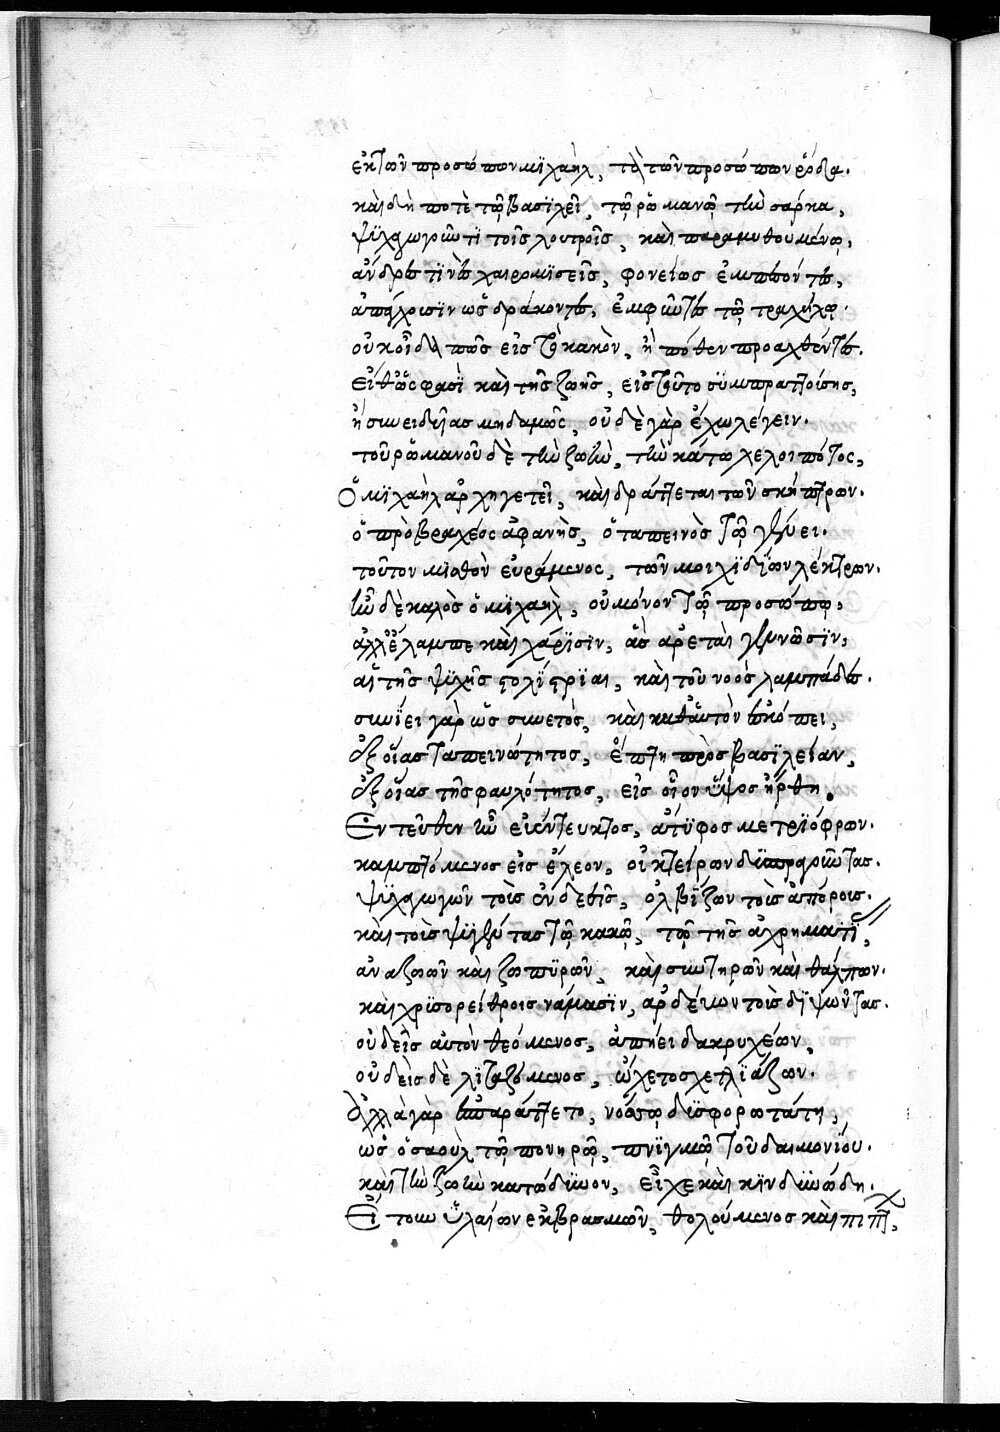 ἐκ τῶν προσώπων μιχαὴλ, τὰ τῶν προσώπων ῥόδα.
καὶ δή ποτε τῷ βασιλεῖ, τῷ ῥωμανῷ τὴν σάρκα,
ψυχαγωγοῦντι τοῖς λουτροῖς, καὶ παραμυθουμένῳ,
ἄνδρες τινὲς χαιρομυσεῖς, φονείως ἐμπεσόντες,
ἀπάγχουσιν ὡς δράκοντες, ἐμφύντες τῷ τραχήλῳ.
οὐκ οἶδα πῶς εἰς τὸ κακὸν, ἢ πόθεν προαχθέντες.
εἴθ' ὥς φασι καὶ τῆς ζωῆς, εἰς τοῦτο συμπραττούσης,
ἢ συνειδυίας μηδαμῶς, οὐδὲ γὰρ ἔχω λέγειν.
τοῦ ῥωμανοῦ δὲ τὴν ζωὴν, τὴν κάτω λελοιπότος,
Ὁ μιχαὴλ ἀρχηγετεῖ, καὶ δράττεται τῶν σκήπτρων.
ὁ πρὸ βραχέος ἀφανὴς, ὁ ταπεινὸς τῷ γένει.
τοῦτον μισθὸν εὑράμενος, τῶν μοιχιδίων λέκτρων.
ἦν δὲ καλὸς ὁ μιχαὴλ, οὐ μόνον τῷ προσώπῳ,
ἀλλ' ἔλαμπε καὶ χάρισιν, ἃς ἀρεταὶ γεννῶσιν,
αἱ τῆς ψυχῆς στολίστριαι, καὶ τοῦ νοὸς λαμπάδες.
συνίει γὰρ ὡς συνετὸς, καὶ καθ' αὑτὸν ἐσκόπει,
ἐξ οἵας ταπεινότητος, ἔπτη πρὸς βασιλείαν,
ἐξ οἵας τῆς φαυλότητος, εἰς οἷον ὕψος ἤρθη.
Ἐντεῦθεν ἦν εὐέντευκτος, ἄτυφος μετριόφρων.
καμπτόμενος εἰς ἔλεον, οἰκτείρων δυσπραγοῦντας.
ψυχαγωγῶν τοῖς ἐνδεέσι, ὀλβίζων τοῖς ἀπόροις.
καὶ τοῖς ψυγέντας τῷ κακῷ, τῷ τῆς ἀχρηματίας,
ἀναζωῶν καὶ ζωπυρῶν, καὶ σωτηρῶν καὶ θάλπων.
καὶ χρυσορείθροις νάμασιν, ἀρδεύων τοῖς διψῶντας.
οὐδεὶς αὐτὸν θεόμενος, ἀπήει δακρυχέων,
οὐδεὶς δὲ λιταζόμενος, ᾤχετο σχετλιάζων.
Ἀλλὰ γὰρ ἐσπαράττετο, νόσῳ δυσφορωτάτη,
ὡς ὁ σαοὺλ τῷ πονηρῷ, πνιγμῷ τοῦ δαιμονίου.
καὶ τὴν ζωὴν κατώδυνον, εἶχε καὶ κινδυνώδη.